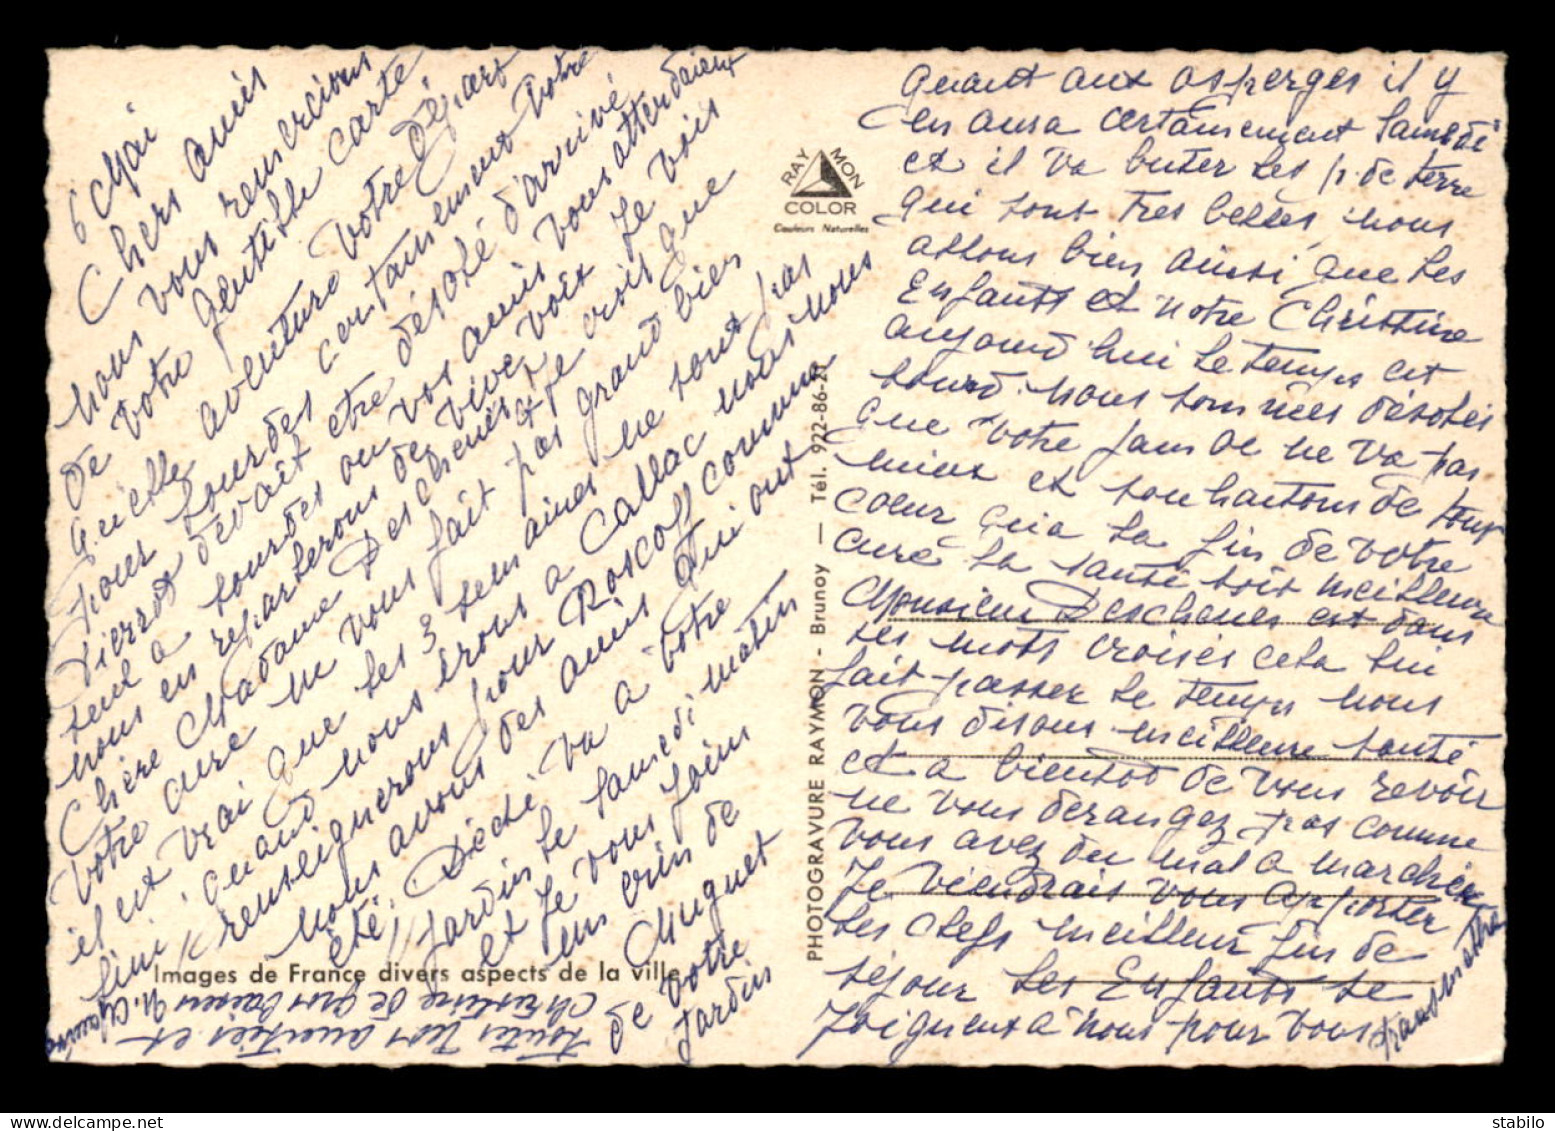 6 Mai
Chers amis
nous vous remercions
de votre gentille carte
quelle aventure votre départ
pour Lourdes certainement votre
Pierrot devait etre désolé d'arrivé
seul a Lourdes ou vos amis vous attendaient
nous en reparlerons de vive voix Je vois
Chère Madame Deschenes que
votre cure ne vous fait pas grand bien
il est vrai que les 3 semaines ne sont pas
fini quand nous irons a Callac nous nous
renseignerons pour Roscoff comme
nous avons des amis qui ont
été. Dédé va a votre
jardin le samedi matin
et Je vous joins
un brin de
Muguet
de votre
jardin
quant aux asperges il y
en aura certainement samedi
et il va buter les p. de terre
qui sont tres belles, nous
allons bien ainsi que les
Enfants et notre Christine
aujourd'hui le temps est
lourd. nous sommes désolés
que votre jambe ne va pas
mieux et souhaitons de tout
cœur qu'a la fin de votre
curé la santé soit meilleure
Monsieur Deschenes est dans
ses mots croisés cela lui
fait passer le temps nous
vous disons meilleure santé
et a bientot de vous revoir
ne vous derangez pas comme
vous avez du mal a marcher
Je viendrais vous apporter
les clefs meilleur fin de
séjour les Enfants se
Joignent a nous pour vous
transmettre
toutes nos amitiés et
Christine de gros baisers
RAYMON
COLOR
Couleurs Naturelles
PHOTOGRAVURE RAYMON - Brunoy — Tél. 922-86-21
Images de France divers aspects de la ville
stabilo